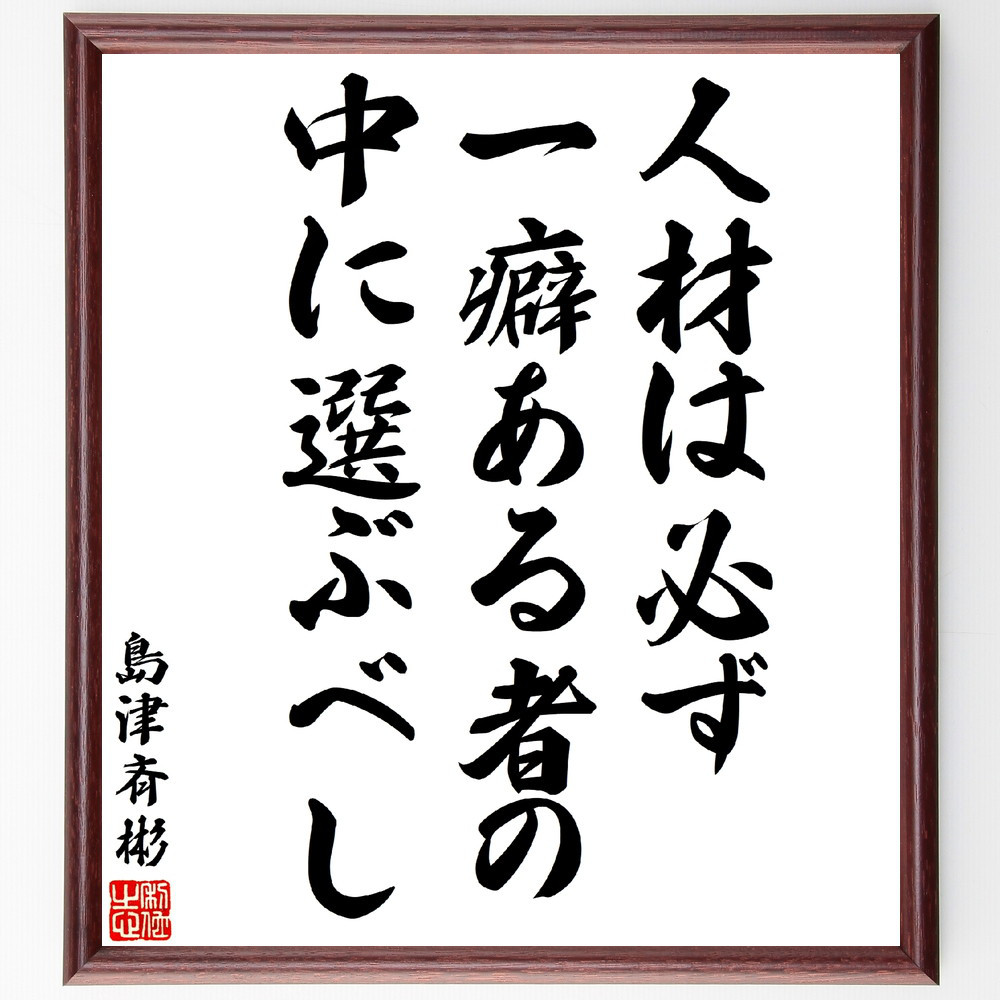 人材は必ず
一癖ある者の
中に選ぶべし
島津斉彬